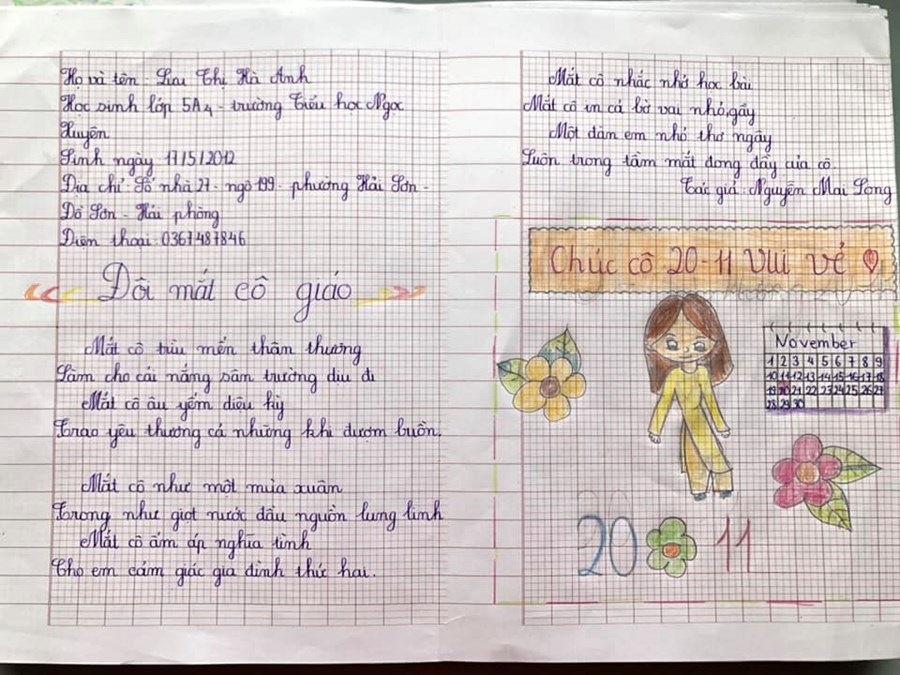 Họ và tên : Lưu Thị Hà Anh
Học sinh lớp 5A4 - trường Tiểu học Ngọc
Xuyên
Sinh ngày 17/5/2012
Địa chỉ Số nhà 27 - ngõ 199 - phường Hải Sơn -
Đồ Sơn - Hải phòng
Điện thoại : 0367487846
Đôi mắt cô giáo
Mắt cô trìu mến thân thương
Làm cho cái nắng sân trường dịu đi
Mắt cô âu yếm diệu kỳ
Trao yêu thương cả những khi đượm buồn.
Mắt cô như một mùa xuân
Trong như giọt nước đầu nguồn lung linh
Mắt cô ấm áp nghĩa tình
Cho em cảm giác gia đình thứ hai.
Mắt cô nhắc nhở học bài
Mắt cô in cả bờ vai nhỏ, gầy
Một đàn em nhỏ thơ ngây
Luôn trong tầm mắt đong đầy của cô.
Tác giả : Nguyễn Mai Long
Chúc cô 20-11 vui vẻ
November
1 2 3 4 5 6 7 8 9
10 11 12 13 14 15 16 17 18
19 20 21 22 23 24 25 26 27
28 29 30
20 11